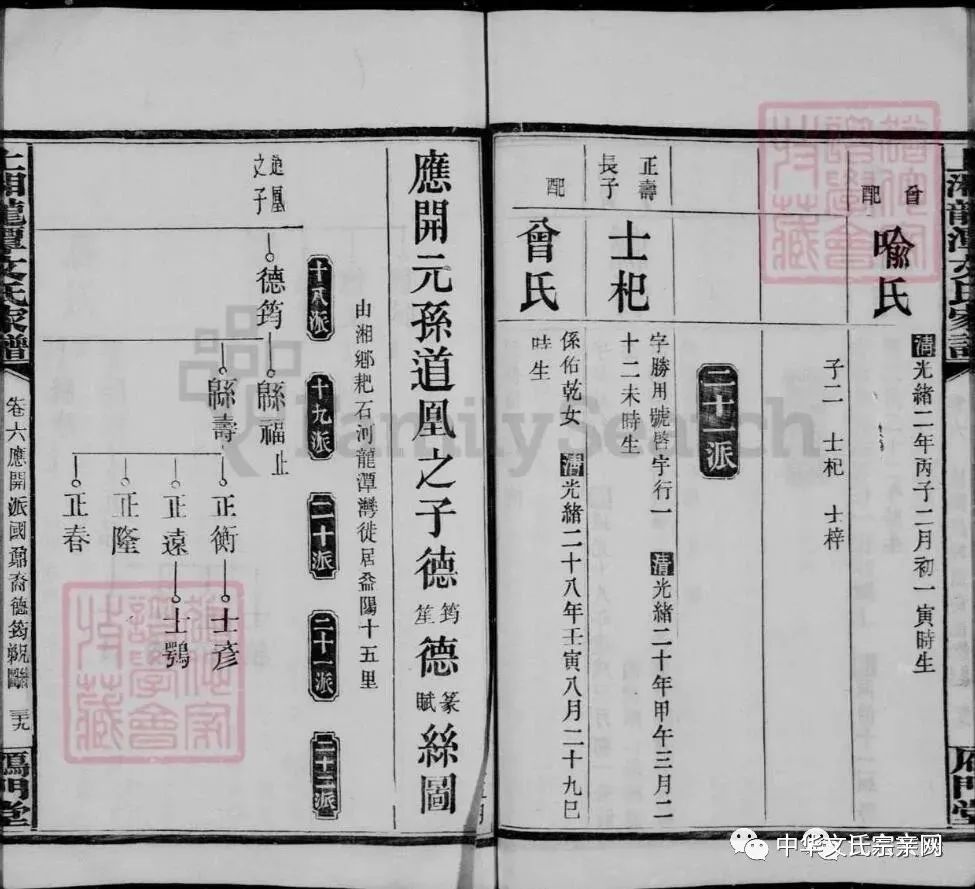 配
曾
喻氏
清光緒二年丙子二月初一寅時生
子二 士杞 士梓
二十一派
正壽
長子
士杞
字勝用號啓宇行一 清光緒二十年甲午三月二
十二未時生
配
曾氏
係佑乾女 清光緒二十八年壬寅八月二十九巳
時生
應開元孫道凰之子德筠笙德篆賦絲圖
由湘鄉耙石河龍潭灣徙居益陽十五里
十八派
十九派
二十派
二十一派
二十二派
道凰
之子
德筠
緜福 止
緜壽
正衡
正遠
正隆
正春
士彥
士鶚
上湘龍潭文氏家譜
卷六應開派國鼐裔德筠
三十九
鴈門堂
FamilySearch
中华文氏宗亲网